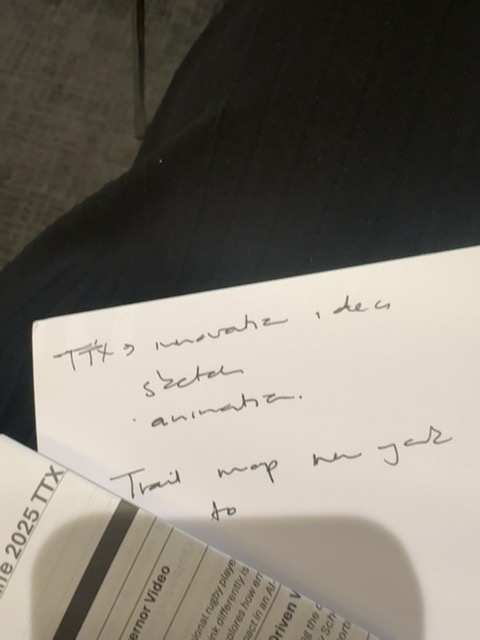 TTX → innovation ideas
sketch
· animation.
Trail map new york
to
ne 2025 TTX
ernor Video
ional rugby playe
ink differently is
xplores how en
pect in an AI-
Driven
ing the c
Sch